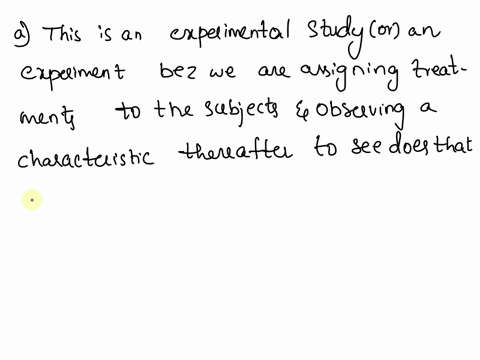 a) This is an experimental study (or) an
experiment bcz we are assigning treat-
ments to the subjects & observing a
characteristic thereafter to see does that